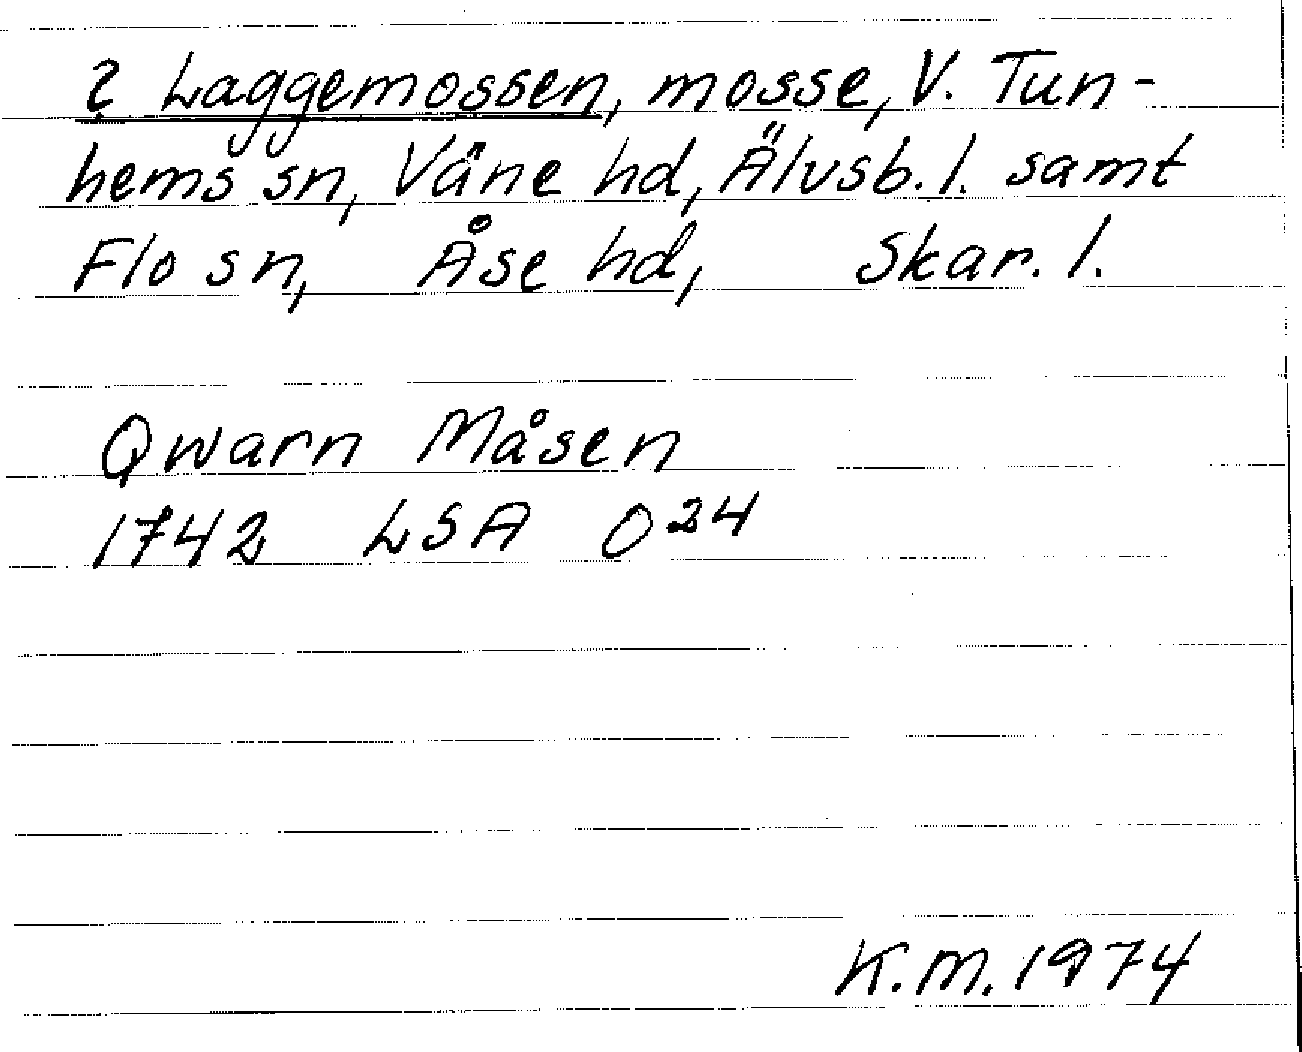 ? Laggemossen, mosse, V. Tun-
hems sn, Väne hd, Älvsb. l. samt
Flo sn, Åse hd, Skar. l.
Qwarn Måsen
1742 LSA O24
K.M. 1974